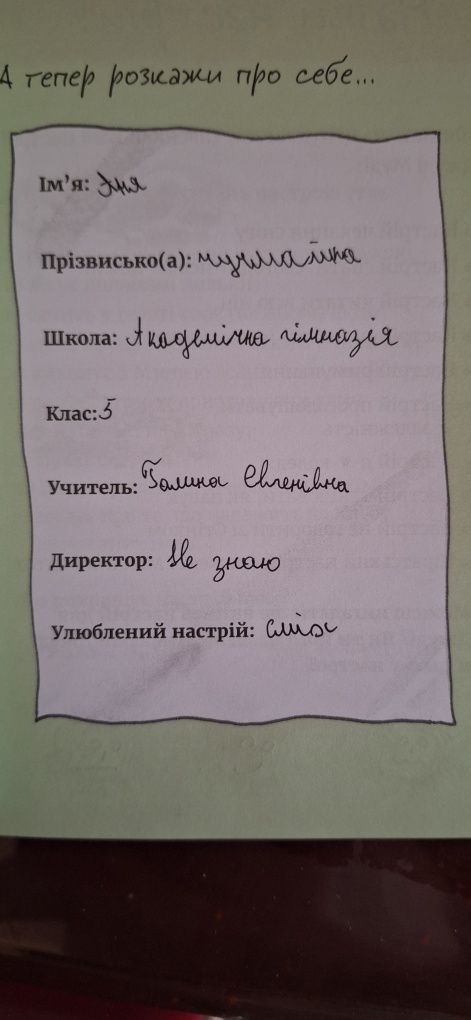 А тепер розкажи про себе...
Ім'я: Аня
Прізвисько(а):
Школа: Академічна гімназія
Клас: 5
Учитель: Галина Євгенівна
Директор: Не знаю
Улюблений настрій: сміх